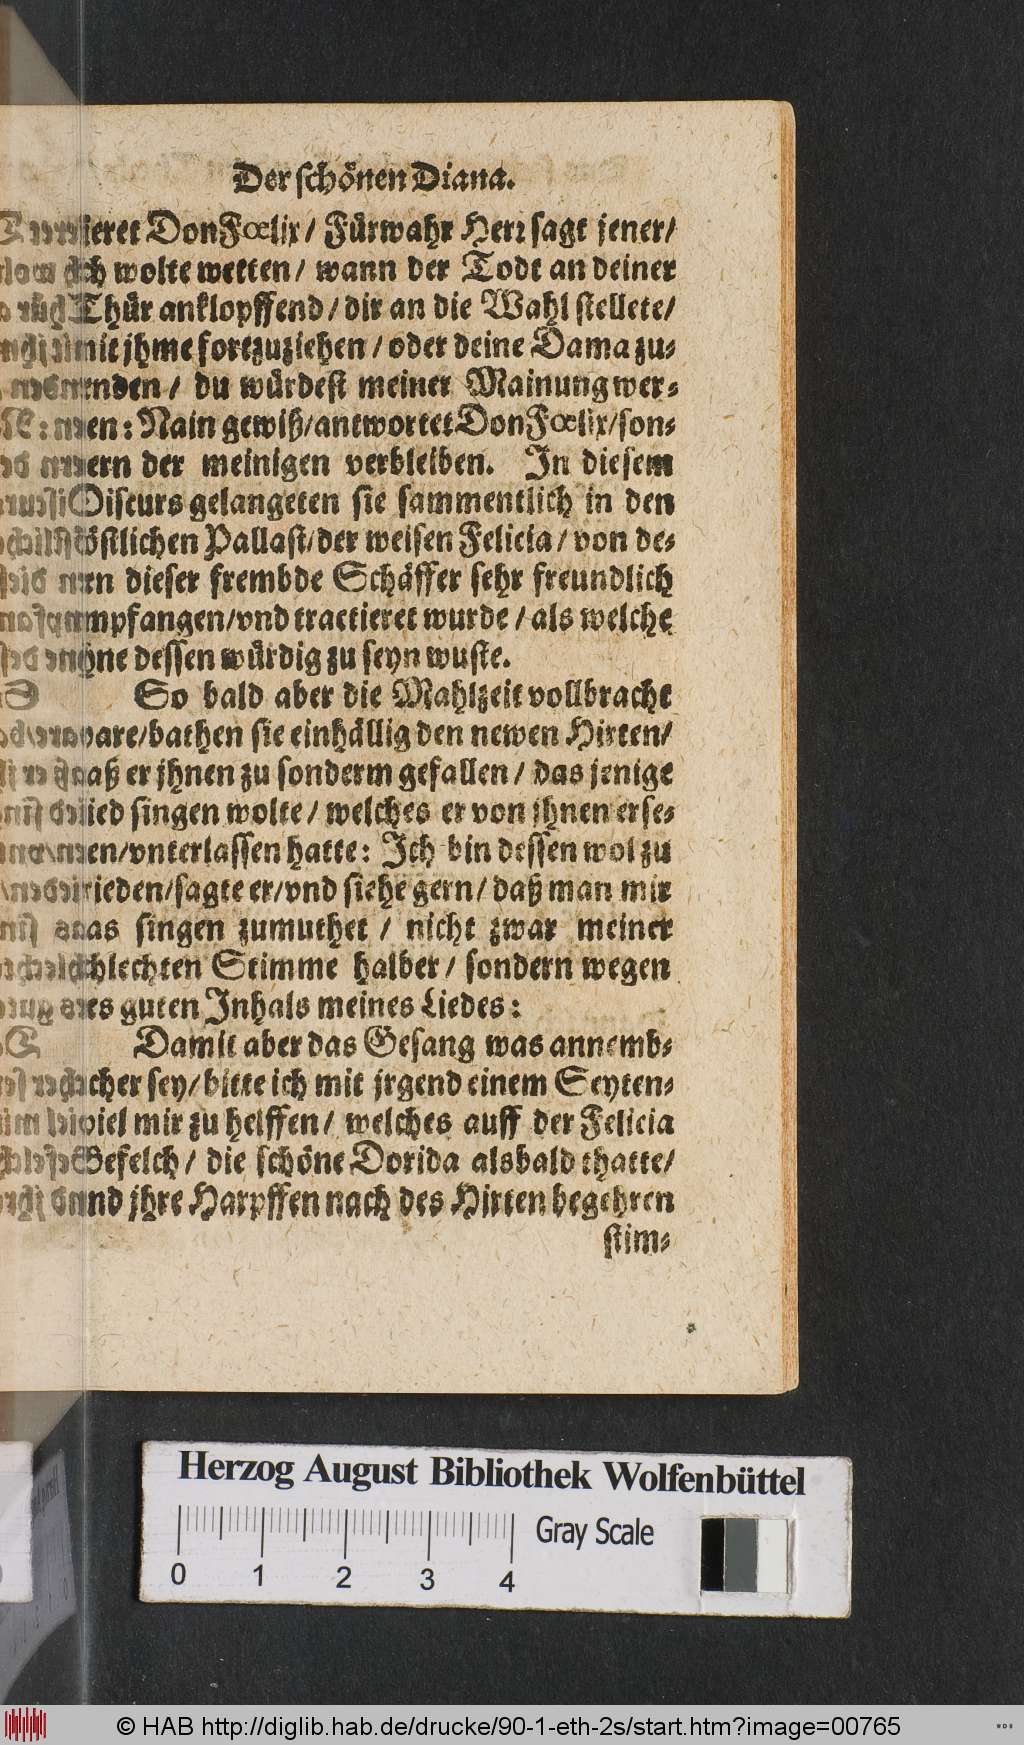 Der schönen Diana.
ieret Don Fœlix / Fürwahr Herr sagt jener /
ich wolte wetten / wann der Todt an deiner
Thür anklopffend / dir an die Wahl stellete /
mit jhme fortzuziehen / oder deine Dama zu-
senden / du würdest meiner Mainung wer-
en: Nain gewiß / antwortet Don Fœlix / son-
ern der meinigen verbleiben. In diesem
Discurs gelangeten sie sammentlich in den
köstlichen Pallast / der weisen Felicia / von de-
ren dieser frembde Schäffer sehr freundlich
empfangen / vnd tractieret wurde / als welche
jhne dessen würdig zu seyn wuste.
So bald aber die Mahlzeit vollbracht
ware / bathen sie einhällig den newen Hirten /
daß er jhnen zu sonderm gefallen / das jenige
Lied singen wolte / welches er von jhnen erse-
hen / vnterlassen hatte: Ich bin dessen wol zu
frieden / sagte er / vnd siehe gern / daß man mir
das singen zumuthet / nicht zwar meiner
schlechten Stimme halber / sondern wegen
des guten Inhals meines Liedes:
Damit aber das Gesang was annemb-
licher sey / bitte ich mit jrgend einem Seyten-
spiel mir zu helffen / welches auff der Felicia
Befelch / die schöne Dorida alsbald thatte /
vnd jhre Harpffen nach des Hirten begehren
stim-
Herzog August Bibliothek Wolfenbüttel
Gray Scale
0 1 2 3 4
© HAB http://diglib.hab.de/drucke/90-1-eth-2s/start.htm?image=00765